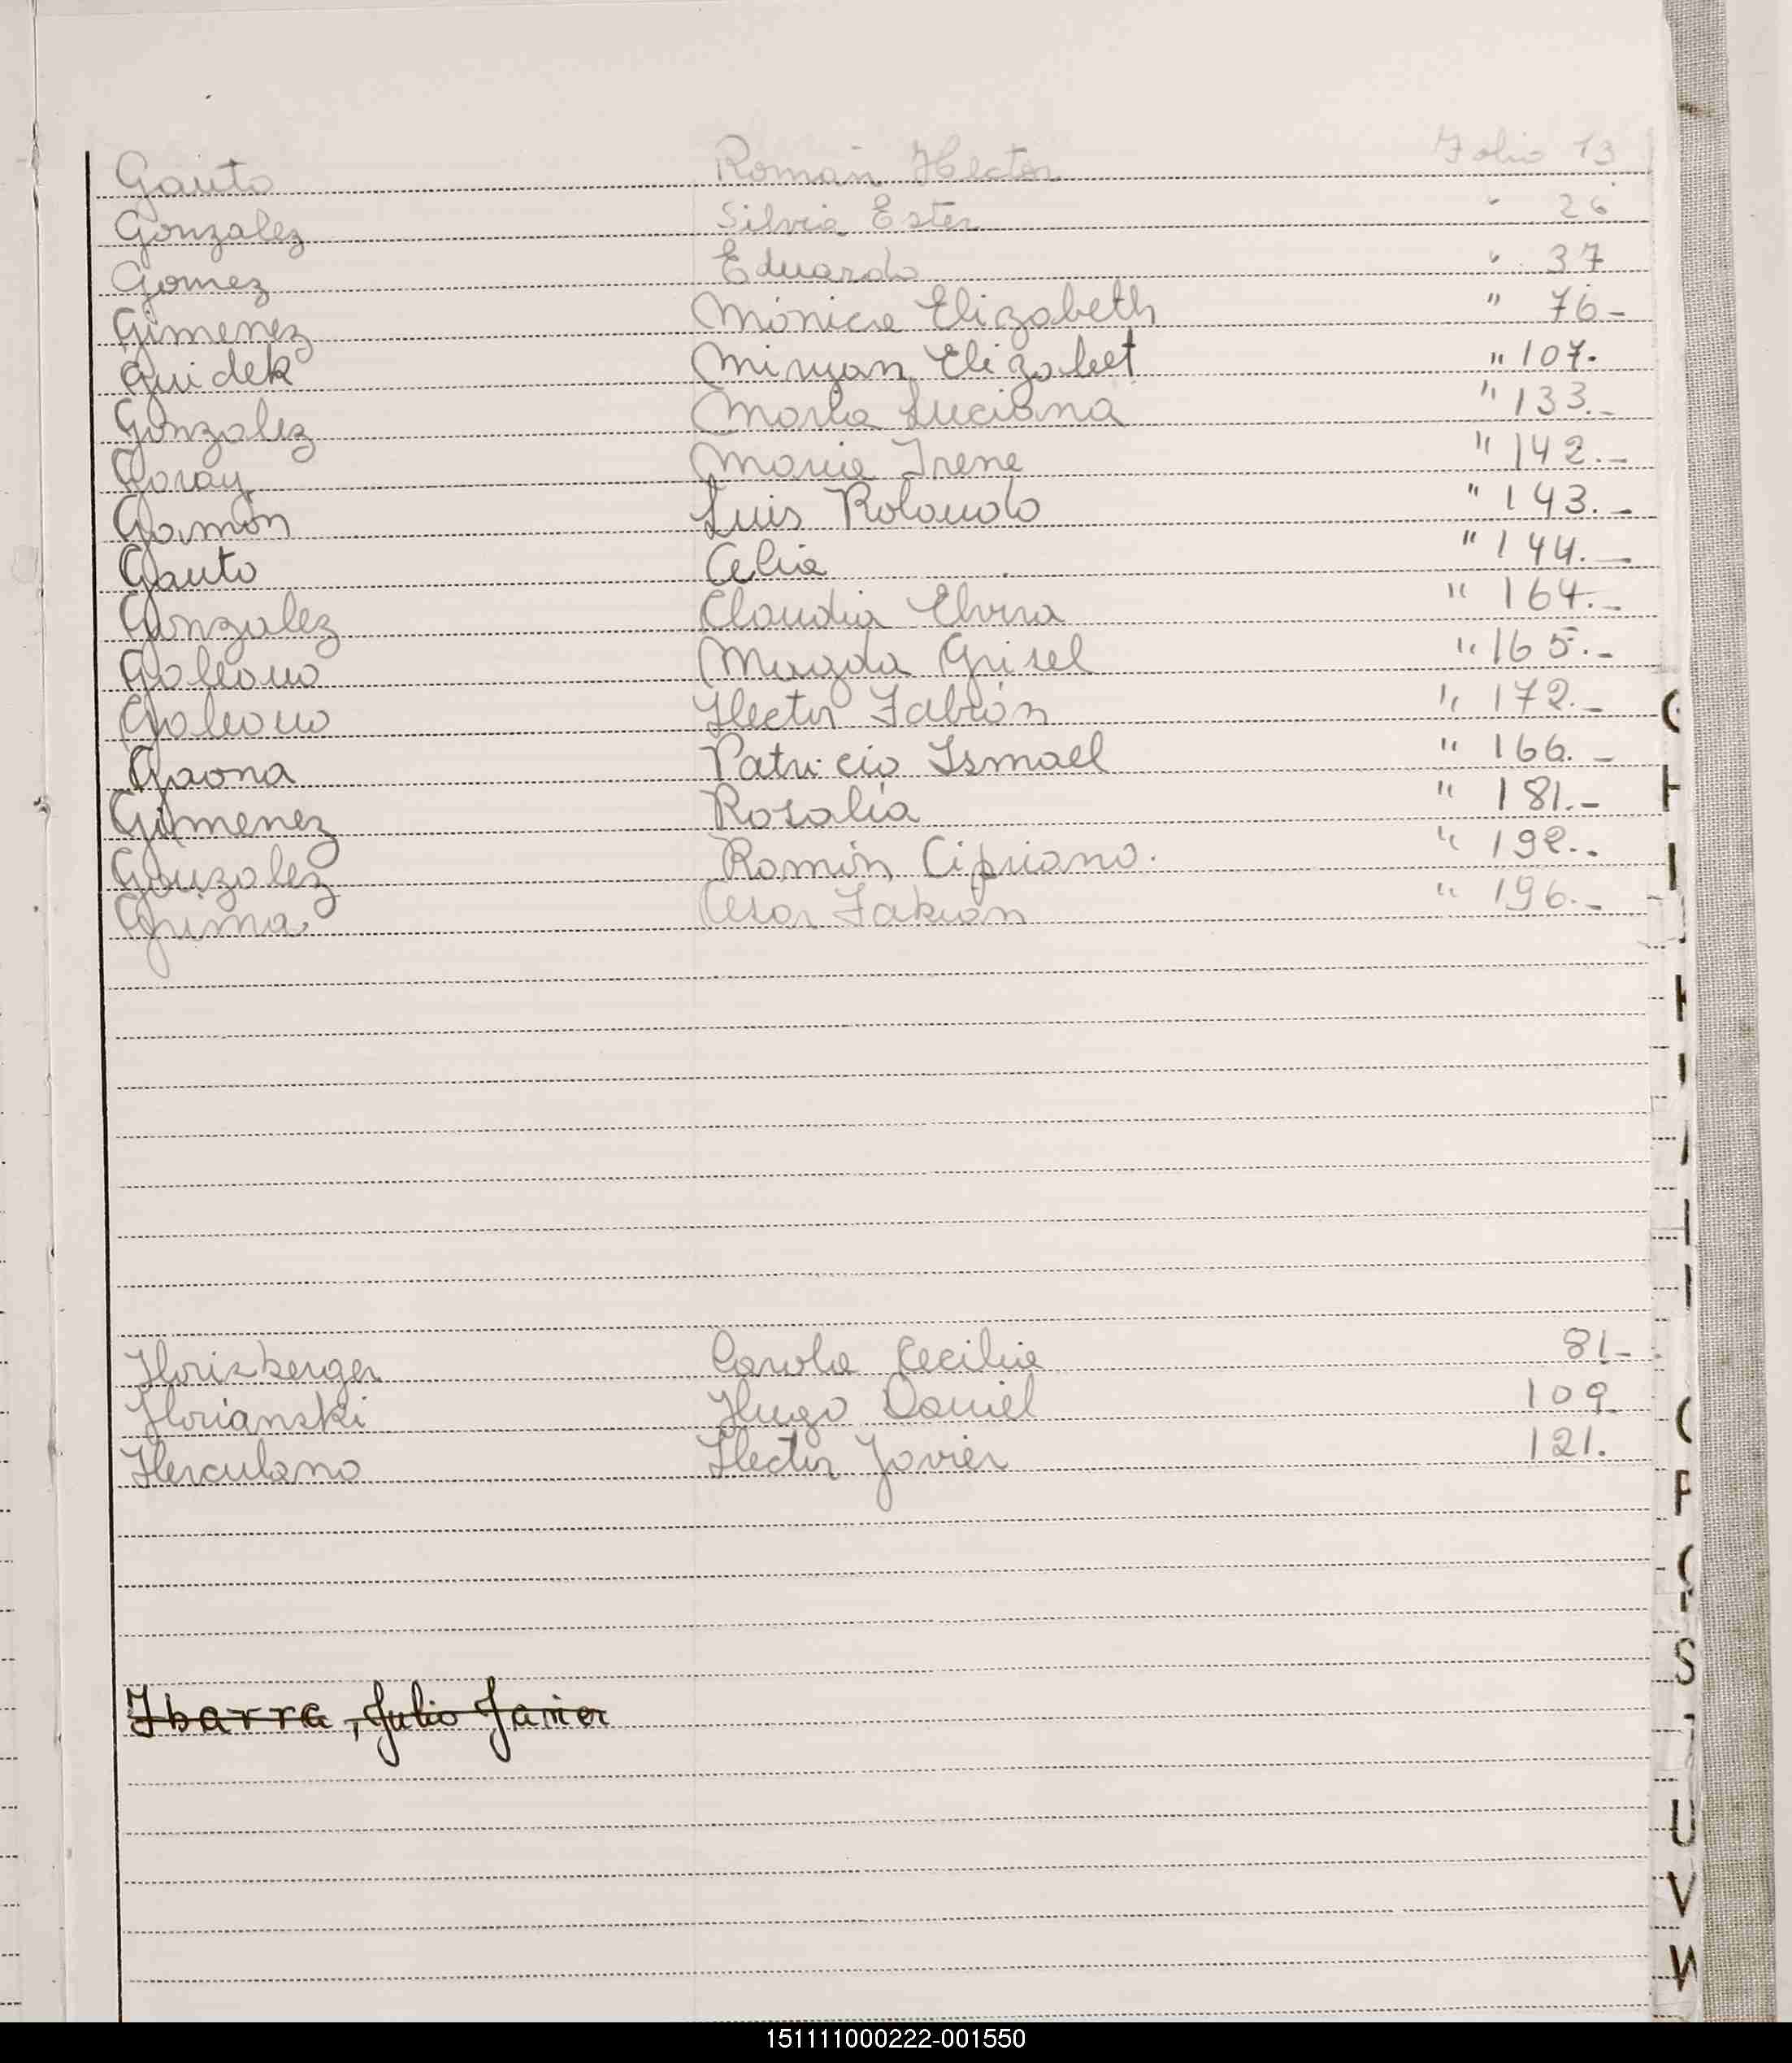 Gauto Román Hector Folio 13
Gonzalez Silvia Ester " 26
Gomez Eduardo " 37
Gimenez Mónica Elizabeth " 76-
Guidek Miryan Elizabet " 107.
Gonzalez María Luciana " 133.-
Goray Maria Irene " 142.-
Gamón Luis Rolando " 143.-
Gauto Celia " 144.-
Gonzalez Claudia Elvira " 164.-
Galeano Magda Grisel " 165.-
Galeano Hector Fabián " 172.-
Gaona Patricio Ismael " 166.-
Gimenez Rosalía " 181.-
Gonzalez Ramón Cipriano. " 192.-
Grima Cesar Fabian " 196.-
Horisberger Carola Cecilia 81-
Horianski Hugo Daniel 109-
Herculano Hector Javier 121.
Ibarra, Julio Javier
G
H
I
K
S
U
V
W
151111000222-001550